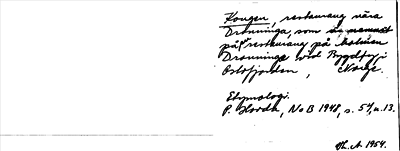 Kongen, restaurang nära
Dronninga, som är namnet
på restaurang på holmen
Dronninga vid Bygdöy i
Oslofjorden, Norge.
Etymologi.
P. Hovda, NoB 1948, s. 54, n. 13.
Th. A. 1954.